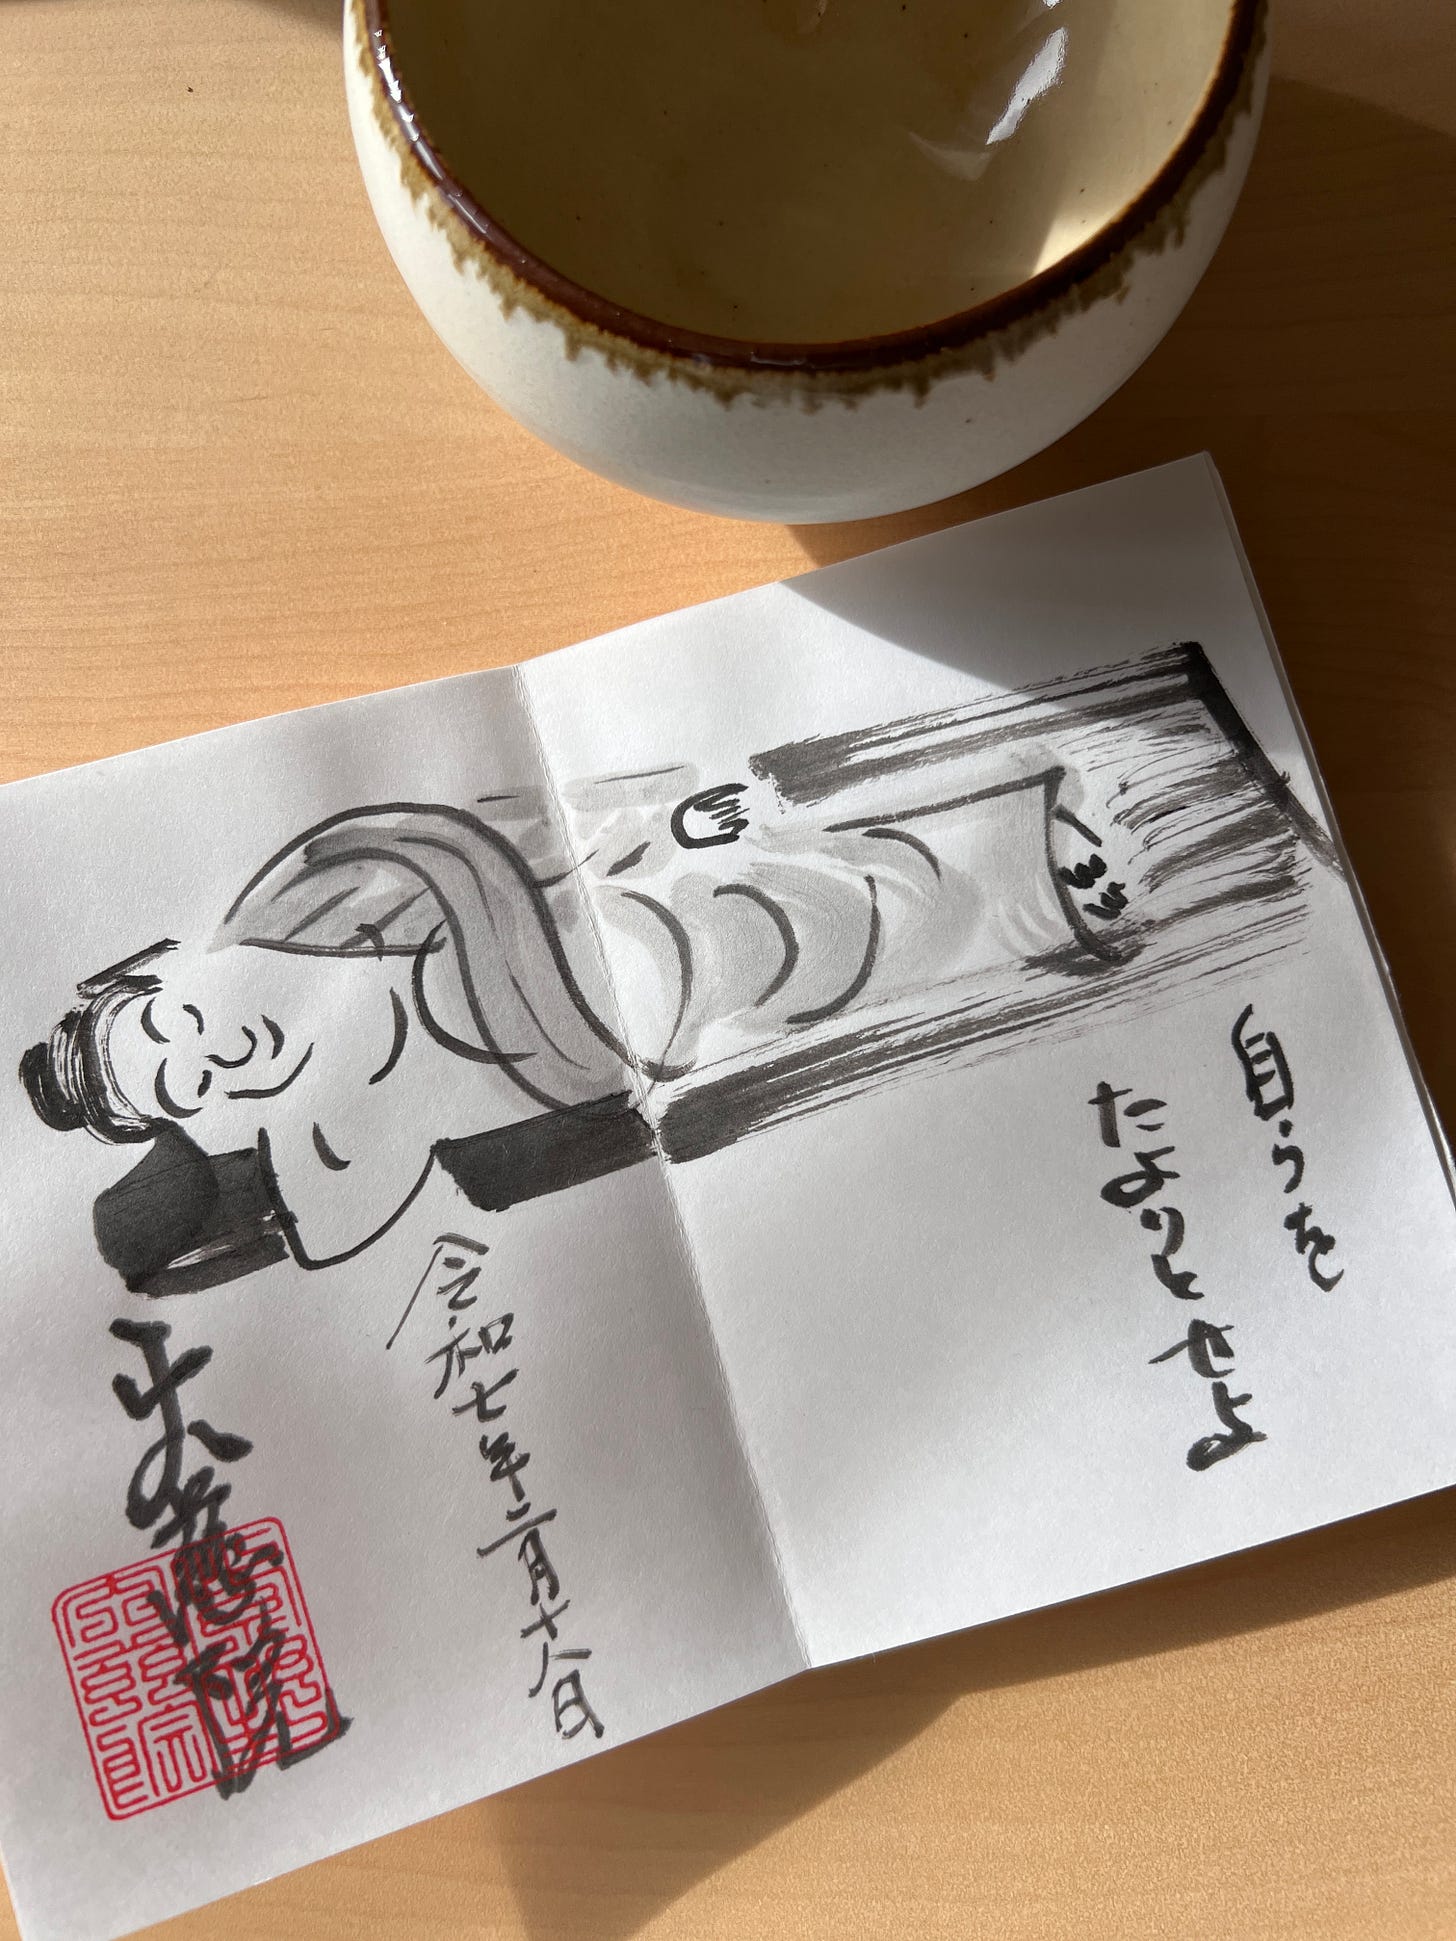 自らを
たよりとせよ
令和七年二月十八日